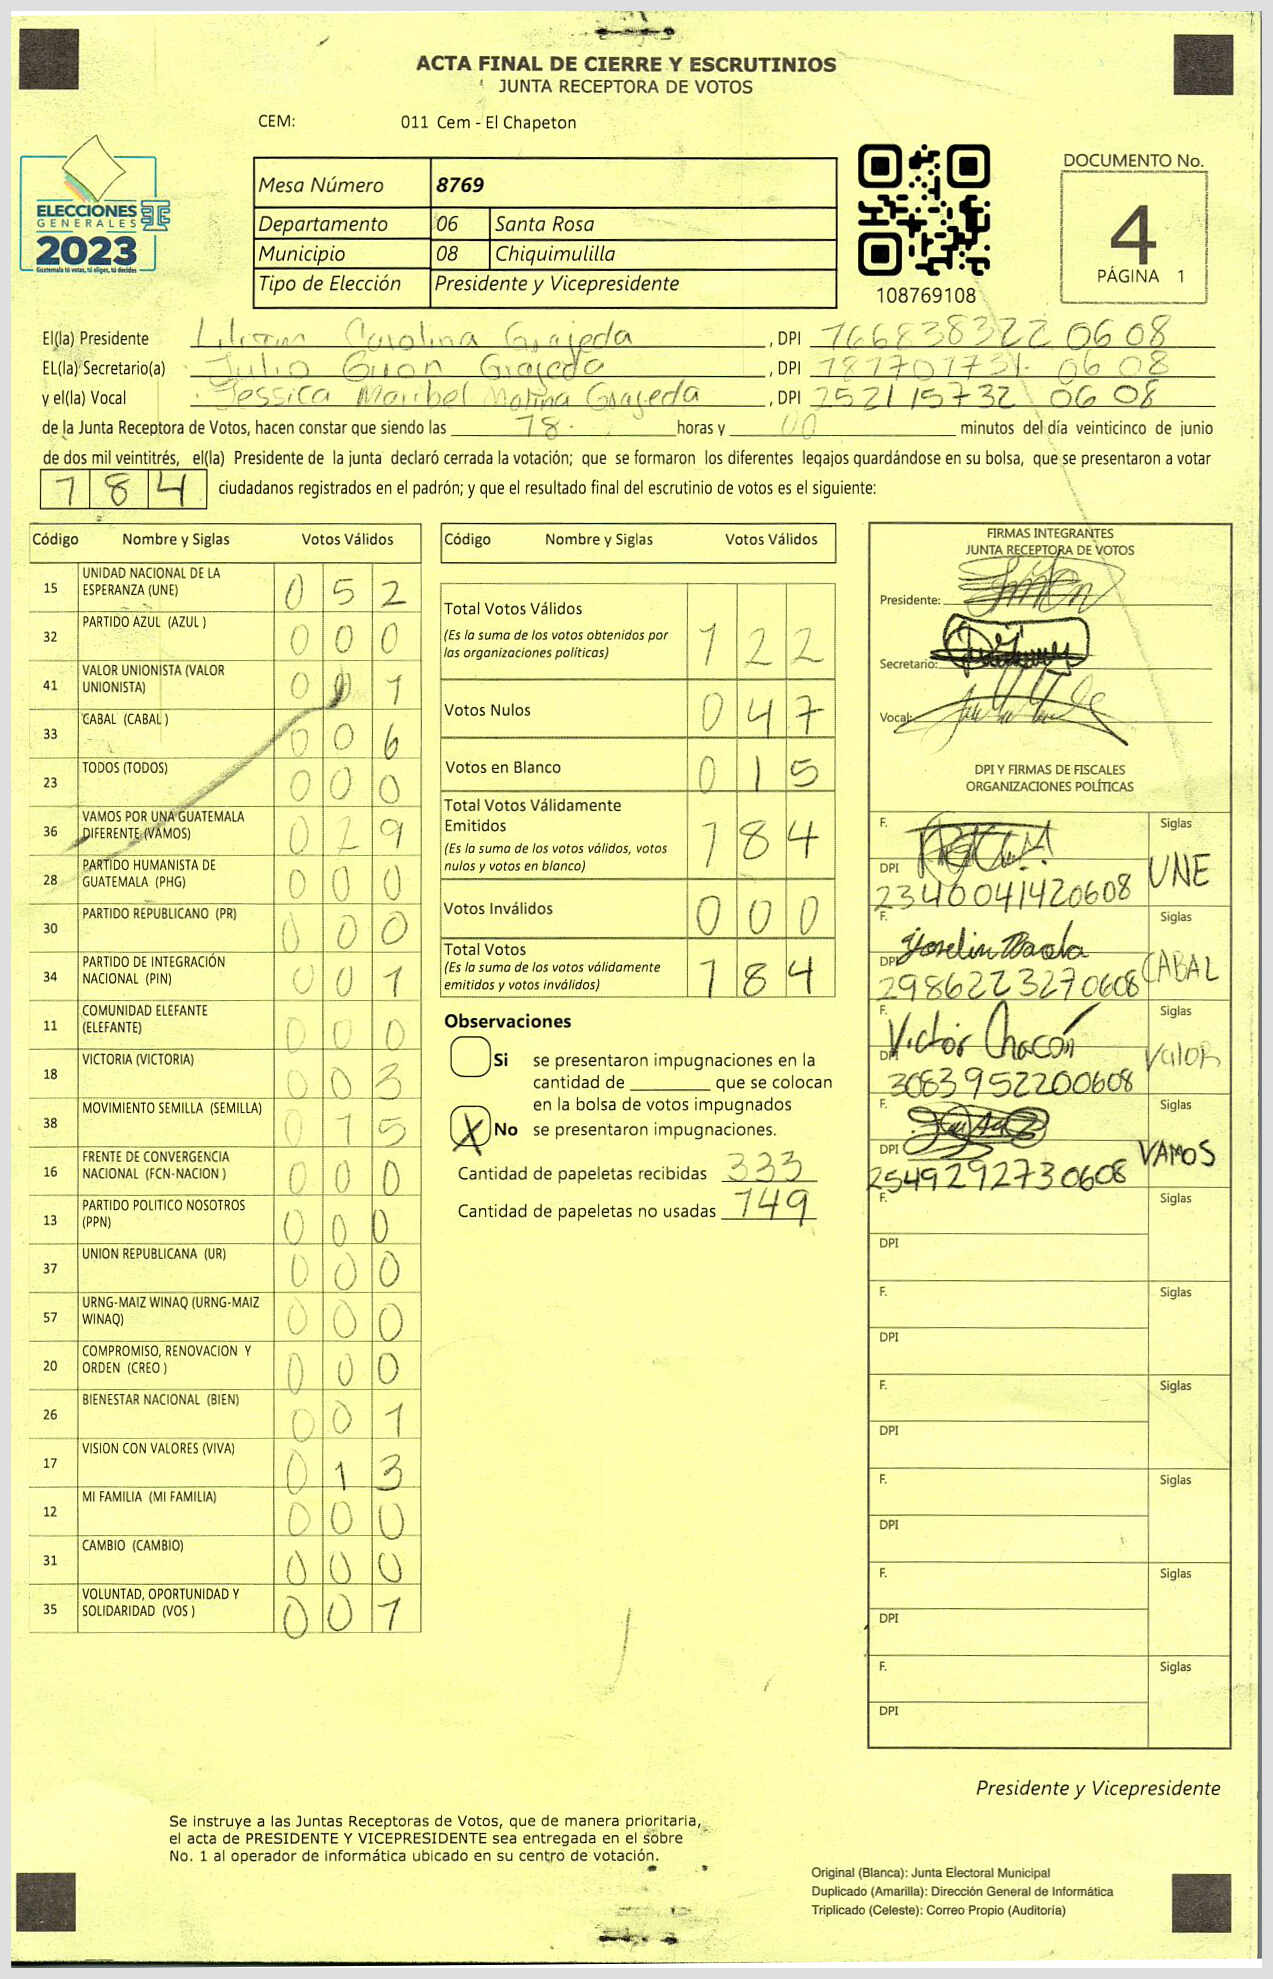 ACTA FINAL DE CIERRE Y ESCRUTINIOS
JUNTA RECEPTORA DE VOTOS
CEM: 011 Cem - El Chapeton
ELECCIONES
GENERALES
2023
Guatemala tú votas, tú eliges, tú decides
Mesa Número 8769
Departamento 06 Santa Rosa
Municipio 08 Chiquimulilla
Tipo de Elección Presidente y Vicepresidente
108769108
DOCUMENTO No.
4
PÁGINA 1
El(la) Presidente Lilian Carolina Grajeda , DPI 166838322 0608
EL(la) Secretario(a) Julio Grajeda , DPI 0608
y el(la) Vocal Jessica Maribel Molina Grajeda , DPI 252115732 0608
de la Junta Receptora de Votos, hacen constar que siendo las 18 horas y 00 minutos del día veinticinco de junio
de dos mil veintitrés, el(la) Presidente de la junta declaró cerrada la votación; que se formaron los diferentes legajos guardándose en su bolsa, que se presentaron a votar
184 ciudadanos registrados en el padrón; y que el resultado final del escrutinio de votos es el siguiente:
Código Nombre y Siglas Votos Válidos
15 UNIDAD NACIONAL DE LA
ESPERANZA (UNE) 052
32 PARTIDO AZUL (AZUL ) 000
41 VALOR UNIONISTA (VALOR
UNIONISTA) 001
33 CABAL (CABAL ) 006
23 TODOS (TODOS) 000
36 VAMOS POR UNA GUATEMALA
DIFERENTE (VAMOS) 029
28 PARTIDO HUMANISTA DE
GUATEMALA (PHG) 000
30 PARTIDO REPUBLICANO (PR) 000
34 PARTIDO DE INTEGRACIÓN
NACIONAL (PIN) 001
11 COMUNIDAD ELEFANTE
(ELEFANTE) 000
18 VICTORIA (VICTORIA) 003
38 MOVIMIENTO SEMILLA (SEMILLA) 015
16 FRENTE DE CONVERGENCIA
NACIONAL (FCN-NACION ) 000
13 PARTIDO POLITICO NOSOTROS
(PPN) 000
37 UNION REPUBLICANA (UR) 000
57 URNG-MAIZ WINAQ (URNG-MAIZ
WINAQ) 000
20 COMPROMISO, RENOVACION Y
ORDEN (CREO ) 000
26 BIENESTAR NACIONAL (BIEN) 001
17 VISION CON VALORES (VIVA) 013
12 MI FAMILIA (MI FAMILIA) 000
31 CAMBIO (CAMBIO) 000
35 VOLUNTAD, OPORTUNIDAD Y
SOLIDARIDAD (VOS ) 001
Código Nombre y Siglas Votos Válidos
Total Votos Válidos
(Es la suma de los votos obtenidos por
las organizaciones políticas) 122
Votos Nulos 047
Votos en Blanco 015
Total Votos Válidamente
Emitidos
(Es la suma de los votos válidos, votos
nulos y votos en blanco) 184
Votos Inválidos 000
Total Votos
(Es la suma de los votos válidamente
emitidos y votos inválidos) 184
Observaciones
Si se presentaron impugnaciones en la
cantidad de ________ que se colocan
en la bolsa de votos impugnados
X No se presentaron impugnaciones.
Cantidad de papeletas recibidas 333
Cantidad de papeletas no usadas 149
FIRMAS INTEGRANTES
JUNTA RECEPTORA DE VOTOS
Presidente:
Secretario:
Vocal:
DPI Y FIRMAS DE FISCALES
ORGANIZACIONES POLÍTICAS
F. Siglas
DPI 2340041420608 UNE
F. Siglas
DPI 2986223270608 CABAL
F. Victor Chacón Siglas
DPI 3083952200608 Valor
F. Siglas
DPI 2549292730608 VAMOS
F. Siglas
DPI
F. Siglas
DPI
F. Siglas
DPI
F. Siglas
DPI
F. Siglas
DPI
F. Siglas
DPI
Presidente y Vicepresidente
Se instruye a las Juntas Receptoras de Votos, que de manera prioritaria,
el acta de PRESIDENTE Y VICEPRESIDENTE sea entregada en el sobre
No. 1 al operador de informática ubicado en su centro de votación.
Original (Blanca): Junta Electoral Municipal
Duplicado (Amarilla): Dirección General de Informática
Triplicado (Celeste): Correo Propio (Auditoría)